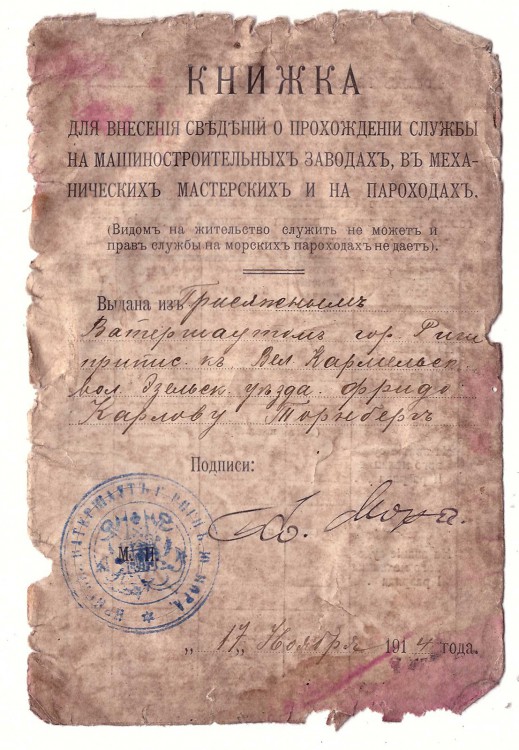 КНИЖКА
ДЛЯ ВНЕСЕНІЯ СВѢДѢНІЙ О ПРОХОЖДЕНІИ СЛУЖБЫ
НА МАШИНОСТРОИТЕЛЬНЫХЪ ЗАВОДАХЪ, ВЪ МЕХА-
НИЧЕСКИХЪ МАСТЕРСКИХЪ И НА ПАРОХОДАХЪ.
(Видомъ на жительство служить не можетъ и
правъ службы на морскихъ пароходахъ не даетъ).
Выдана изъ Присяжнымъ
Ватершаутомъ гор. Риги
припис. къ Вел. Кармельск.
вол. Эзельск. уѣзда Фридо
Карлову Торнбергъ
Подписи:
М. П.
ВАТЕРШАУТЪ Г. РИГИ
„ 17 „ Ноября 1914 года.